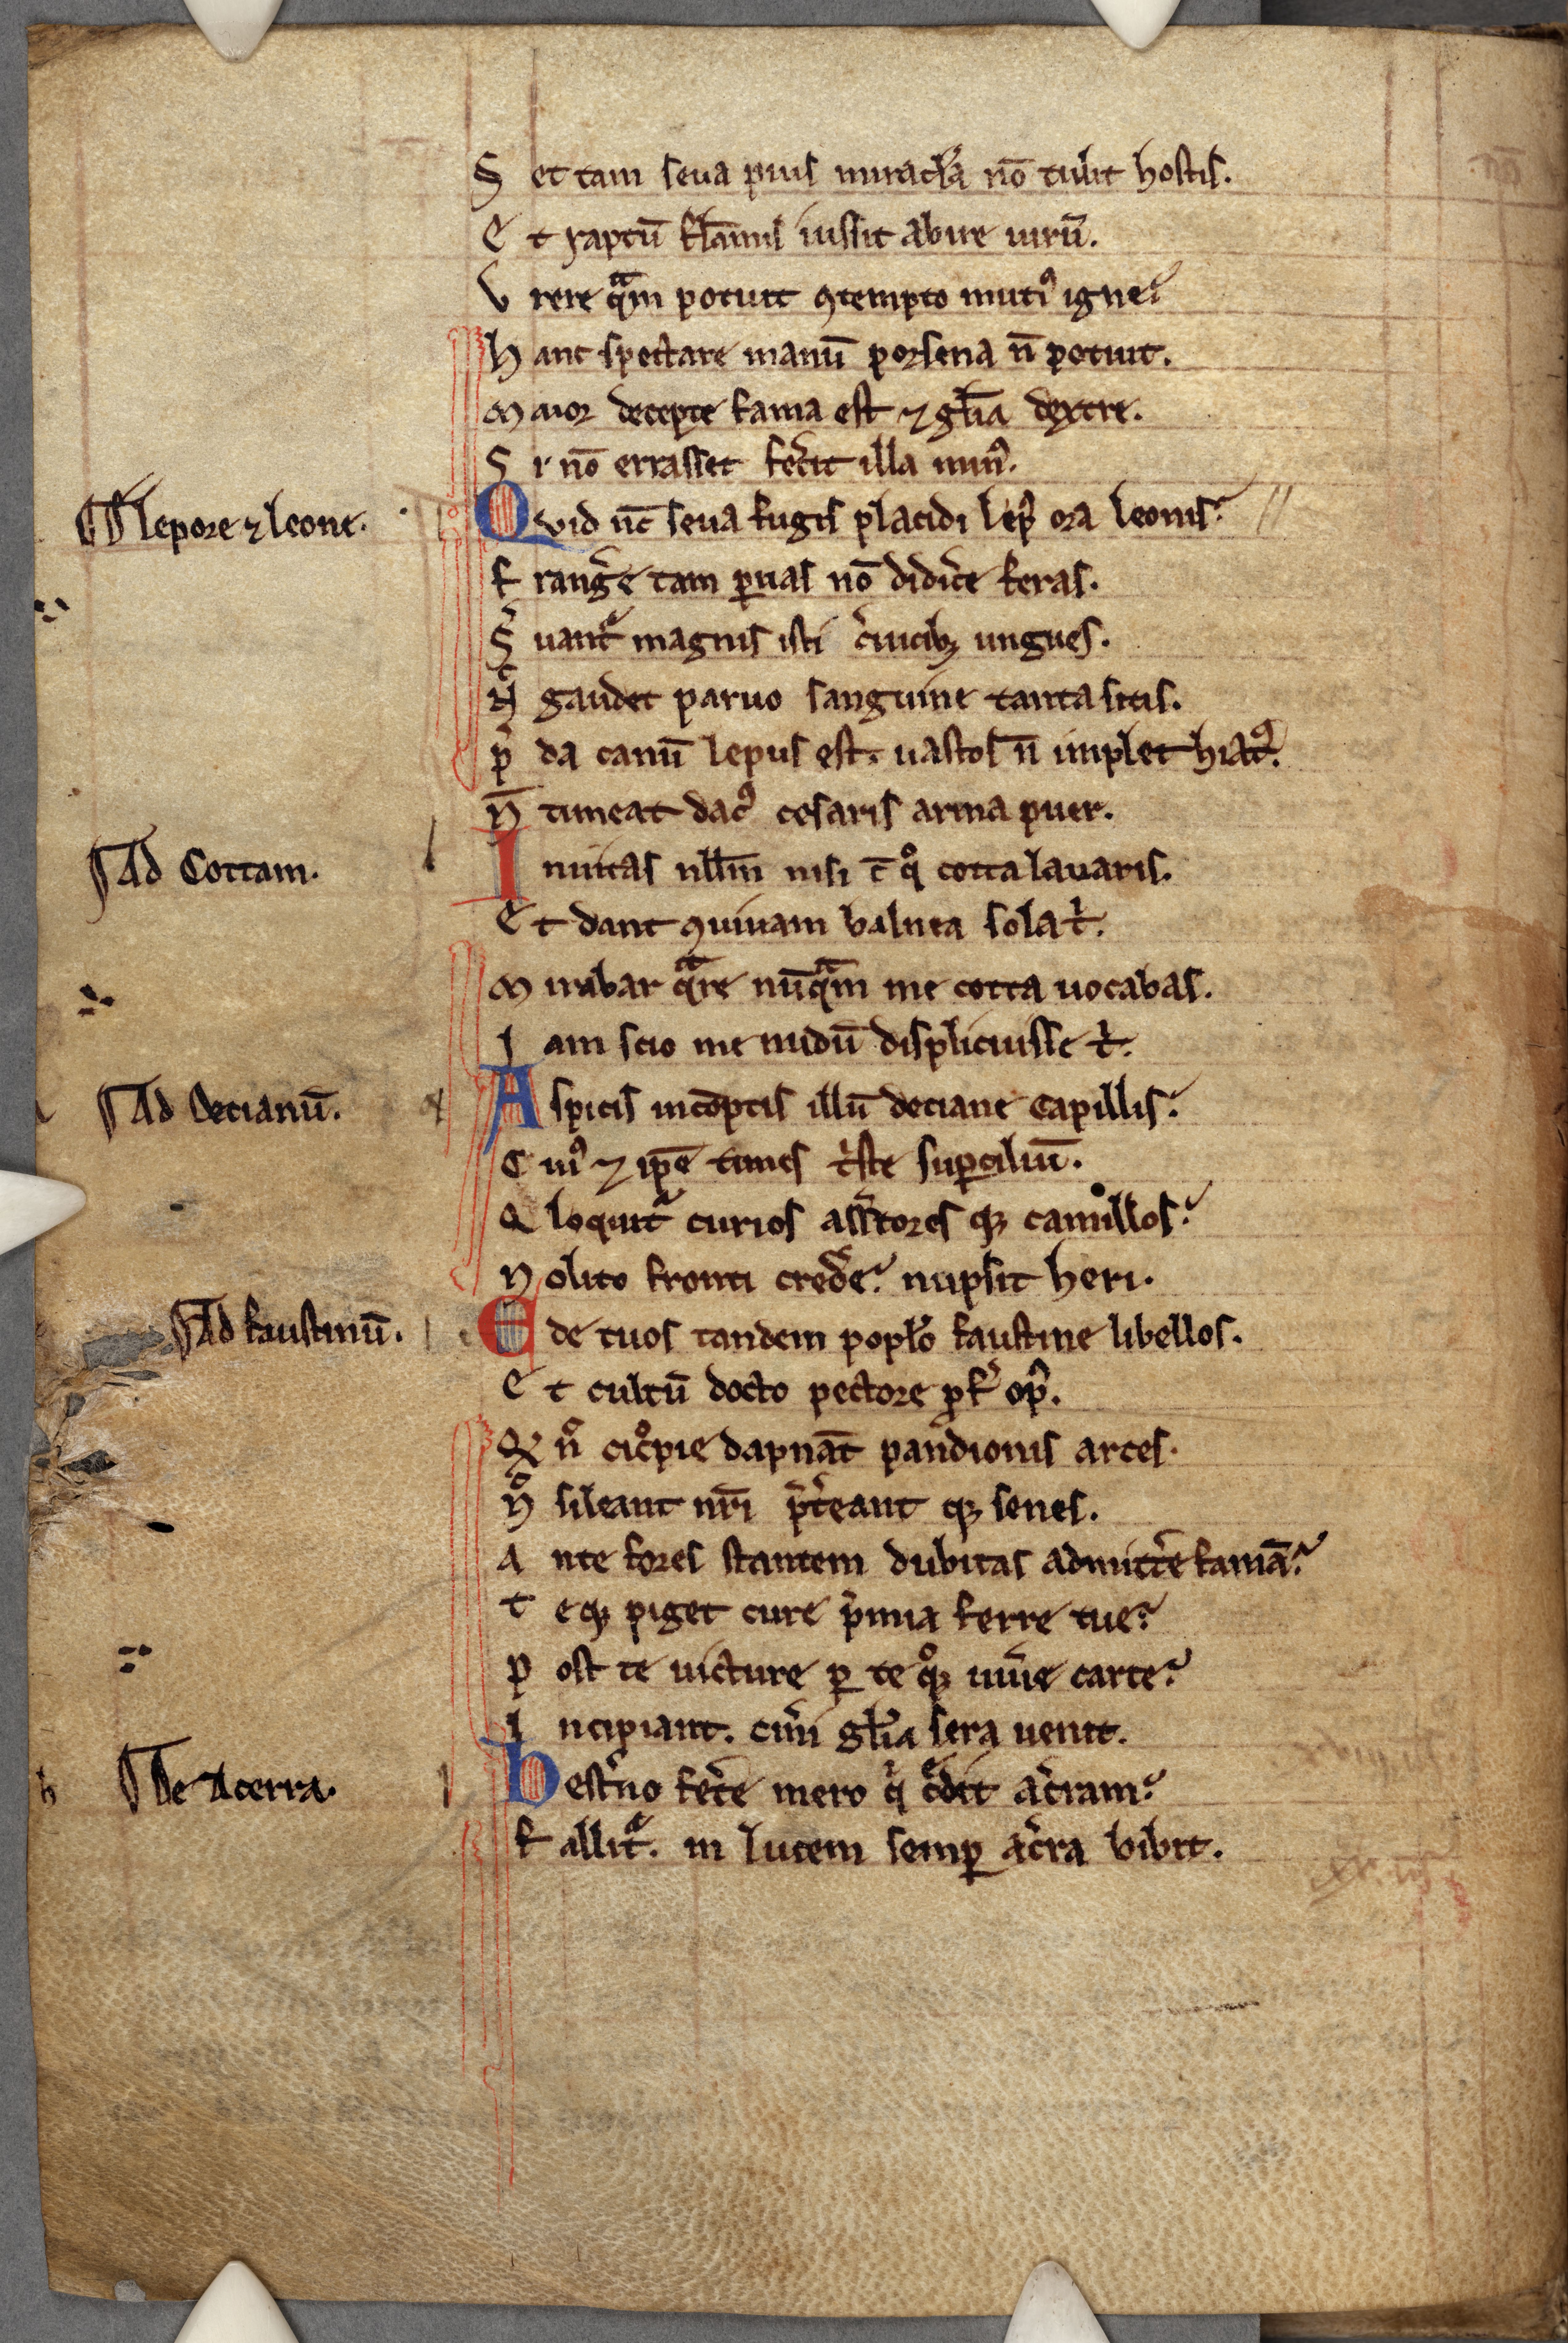 Set tam seua pius miracl'a nō tulit hostis.
Et raptū flāmis iussit abire uirū.
Vrere qᵃm potuit ꝯtempto mutiꝰ igne?
hanc spectare manū porsena n̄ potuit.
Maior decepte fama est ⁊ gl̄ia dextre.
Si nō errasset fec̓it illa minꝰ.
¶ De lepore ⁊ leone.
Quid nc̄ seua fugis placidi lepꝰ ora leonis? //
Frang̓e tam ꝑuas nō didic̓e feras.
S̓uant᷑ magnis isti c̓uicibꝫ ungues.
Nͨ gaudet paruo sanguine tanta sitis.
p̄da canū lepus est. uastos n̄ implet hiatꝰ.
N̄ timeat dacꝰ cesaris arma puer.
¶ Ad Cottam.
Inuitas nll̄m nisi c̄ qͦ cotta lauaris.
Et dant ꝯuiuam balnea sola tⁱ.
Mirabar qᵃre nūqᵃm me cotta uocabas.
Iam scio me nudū displicuisse tⁱ.
¶ Ad Decianū.
Aspicis incōptis illū deciane capillis?
Cuiꝰ ⁊ ip̄e times tⁱste suꝑciliū.
Qͥ loquit᷑ curios ass̓tores qꝫ camillos?
Nolito fronti cred̓e? nupsit heri.
¶ Ad faustinū.
Ede tuos tandem popl'o faustine libellos.
Et cultū docto pectore ꝓf̓ opꝰ.
Qͩ nͦ cic̓pie dapnāt pandionis arces.
Nͦ sileant nr̄i p̄t̓eant qꝫ senes.
Ante fores stantem dubitas admitt̓e famā?
Teqꝫ piget cure p̓mia ferre tue?
Post te uicture ꝑ te qͦꝫ uiu̓e carte?
Incipiant. cin̓i gl'ia sera uenit.
¶ De Acerra.
hest̓no fet̓e mero qⁱ c̓dit ac̓ram?
Fallit᷑. in lucem semꝑ ac̓ra bibit.